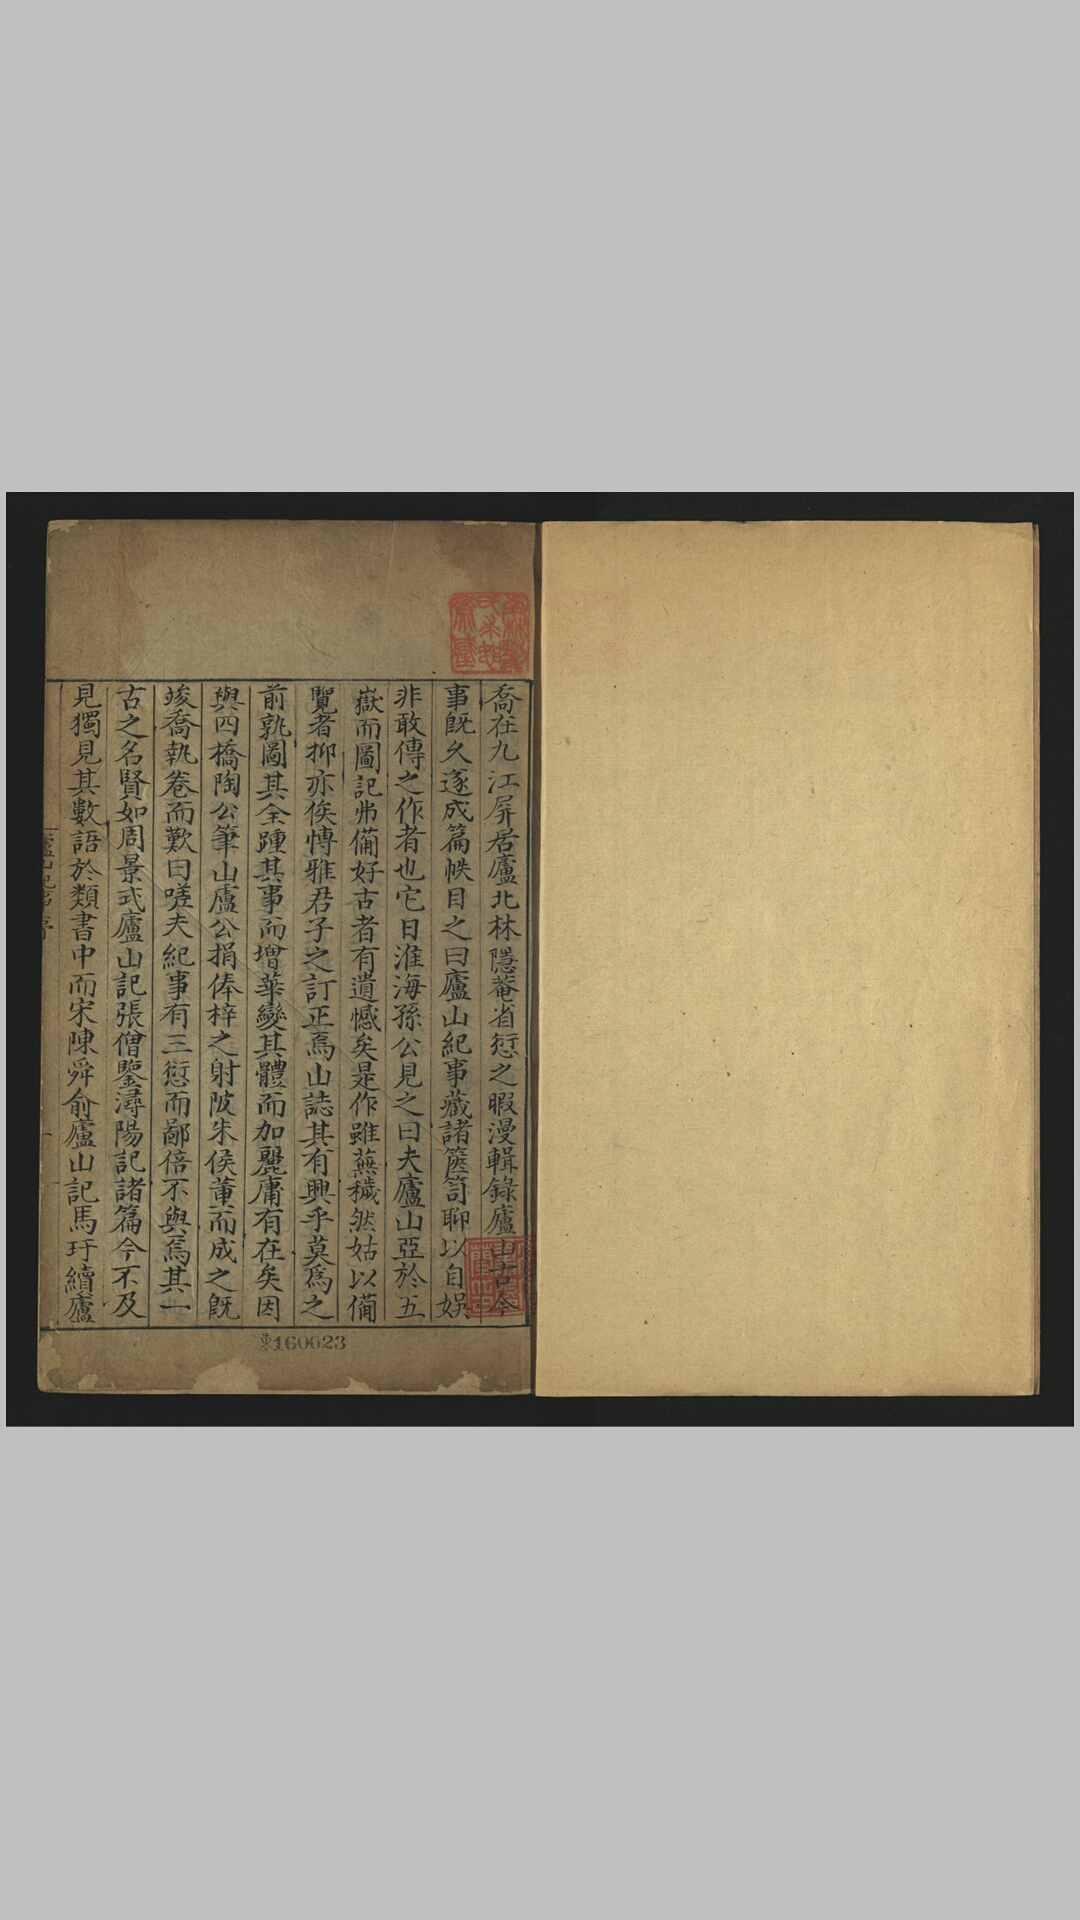 喬在九江屏居廬北林隱菴省愆之暇漫輯錄廬山古今
事既久遂成篇帙目之曰廬山紀事藏諸篋笥聊以自娛
非敢傳之作者也它日淮海孫公見之曰夫廬山亞於五
嶽而圖記弗備好古者有遺憾矣是作雖蕪穢然姑以備
覽者抑亦俟愽雅君子之訂正焉山誌其有興乎莫爲之
前孰圖其全踵其事而增華變其體而加麗庸有在矣因
與四橋陶公筆山盧公捐俸梓之射陂朱侯董而成之既
竣喬執卷而歎曰嗟夫紀事有三愆而鄙倍不與焉其一
古之名賢如周景式廬山記張僧鑒潯陽記諸篇今不及
見獨見其數語於類書中而宋陳舜俞廬山記馬玗續廬
東160023